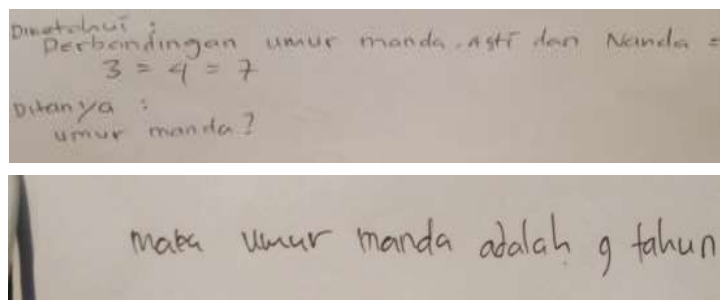 Diketahui :
Perbandingan umur manda, Asti dan Nanda =
3 = 4 = 7
Ditanya :
umur manda?
maka umur manda adalah 9 tahun